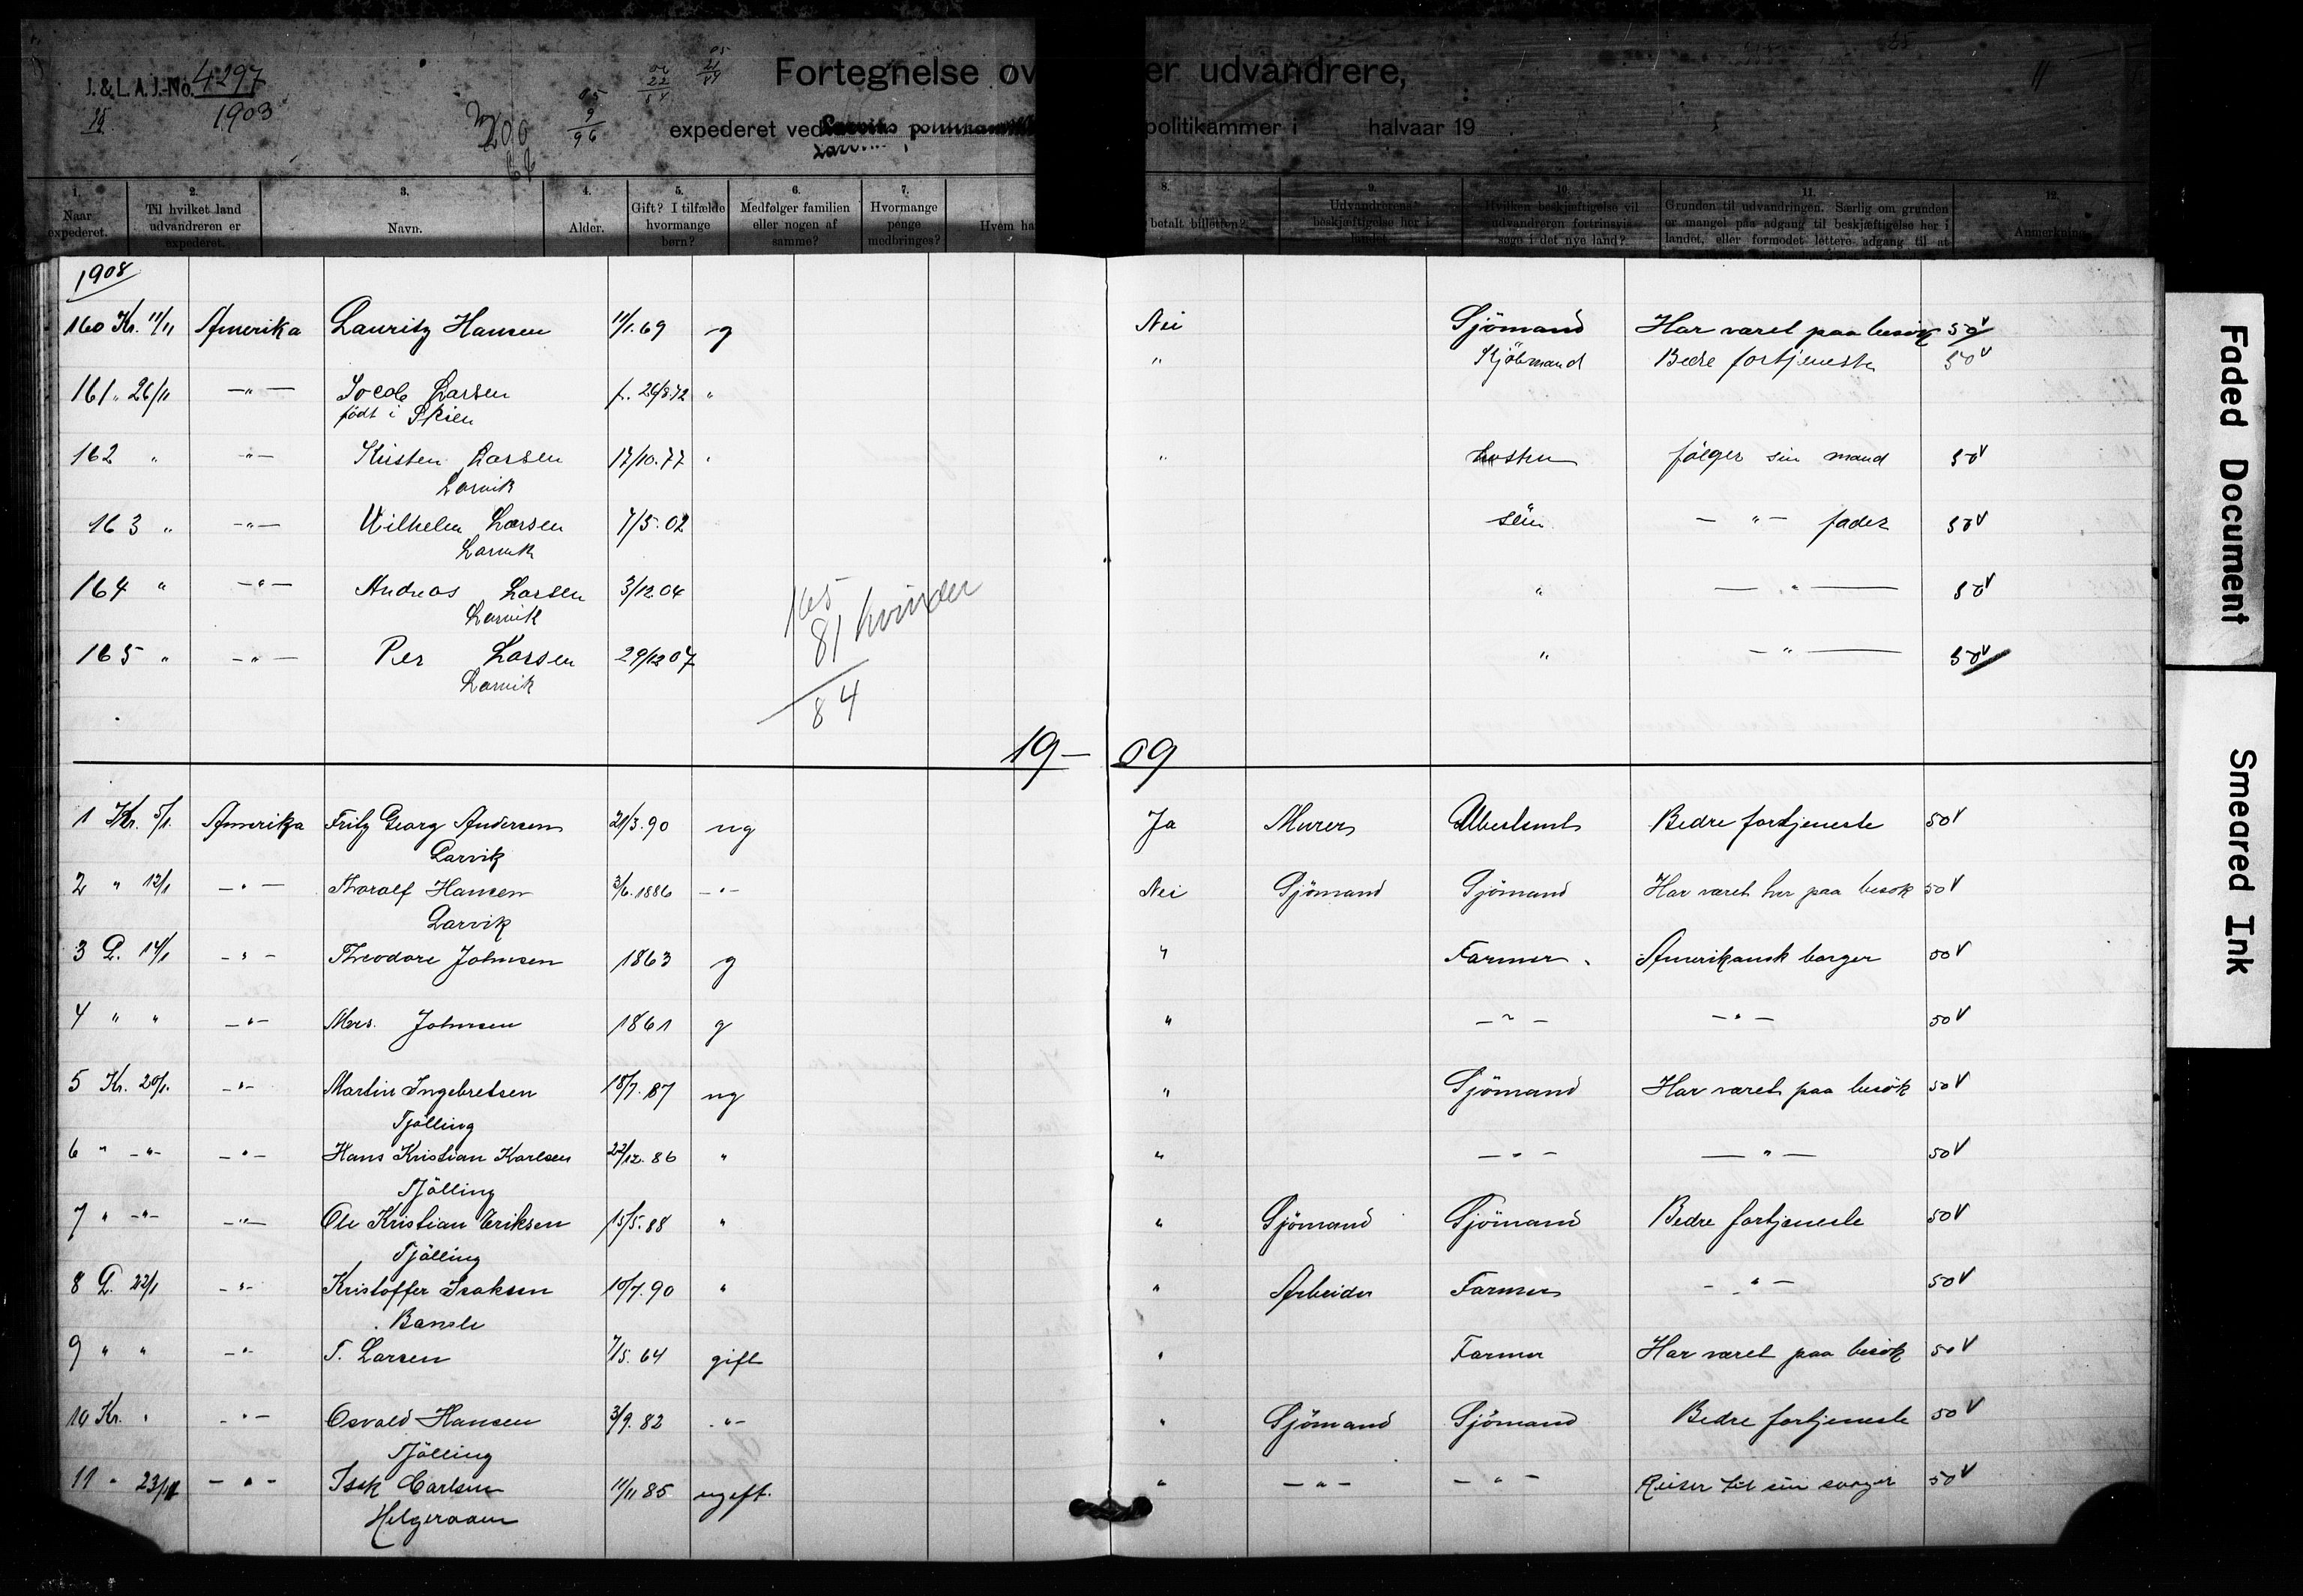 J. & L. A. J.-No. 4297
1903
Fortegnelse ov er udvandrere,
expederet ved politikammer i halvaar 19
Larvik
200
1. Naar expederet.
2. Til hvilket land udvandreren er expederet.
3. Navn.
4. Alder.
5. Gift? I tilfælde hvormange børn?
6. Medfølger familien eller nogen af samme?
7. Hvormange penge medbringes?
8. Hvem ha betalt billetten?
9. Udvandrerens beskjæftigelse her i landet.
10. Hvilken beskjæftigelse vil udvandreren fortrinsvis søge i det nye land?
11. Grunden til udvandringen. Særlig om grunden er mangel paa adgang til beskjæftigelse her i landet, eller formodet lettere adgang til at
12. Anmerkning.
1908
160 Kr. 11/11 Amerika Lauritz Hansen 11/1.69 g Nei Sjömand Har været paa besök 50 V
" Kjöbmand Bedre fortjeneste 50 V
161 " 26/11 — " — Jocob Larsen f. 26/8.72 "
födt i Skien
162 " — " — Kristen Larsen 17/10.77 " " hustru fölger sin mand 50 V
Larvik
163 " — " — Wilhelm Larsen 7/5.02 sön — " — fader 50 V
Larvik
164 " — " — Andreas Larsen 3/12.04 " — " — 50 V
Larvik
165 " — " — Per Larsen 29/12 07 " — " — 50 V
Larvik
165
81 kvinder
84
19 — 09
1 Kr. 5/1. Amerika Fritz Georg Andersen 21/3.90 ug Ja Murer Ubestemt Bedre fortjeneste 50 V
Larvik
2 " 12/1 — " — Thoralf Hansen 3/6.1886 — " — Nei Sjömand Sjömand Har været her paa besok 50 V
Larvik
3 L. 14/1 — " — Theodore Johnsen 1863 g " Farmer Amerikansk borger 50 V
4 " " — " — Mrs. Johnsen 1861 g " — " — — " — 50 V
5 Kr. 20/1. — " — Martin Ingebretsen 18/7.87 ug " Sjömand Har været paa besök 50 V
Tjölling
6 " — " — — " — Hans Kristian Karlsen 22/12.86 " " — " — — " — 50 V
Tjölling
7 " — " — — " — Ole Kristian Eriksen 15/5.88 " " Sjömand Sjömand Bedre fortjeneste 50 V
Tjölling
8 L. 22/1 — " — Kristoffer Isaksen 10/7.90 " " Arbeider Farmer — " — 50 V
Bamle
9 " " — " — T. Larsen 7/5.64 gift " Farmer Har været paa besök 50 V
10 Kr. " — " — Osvald Hansen 3/9.82 — " — " Sjömand Sjömand Bedre fortjeneste 50 V
Tjölling
11 " 23/1 — " — Isak Carlsen 11/11 85 ugift. " — " — — " — Reiser til sin svoger 50 V
Helgeroaen
Faded Document
Smeared Ink